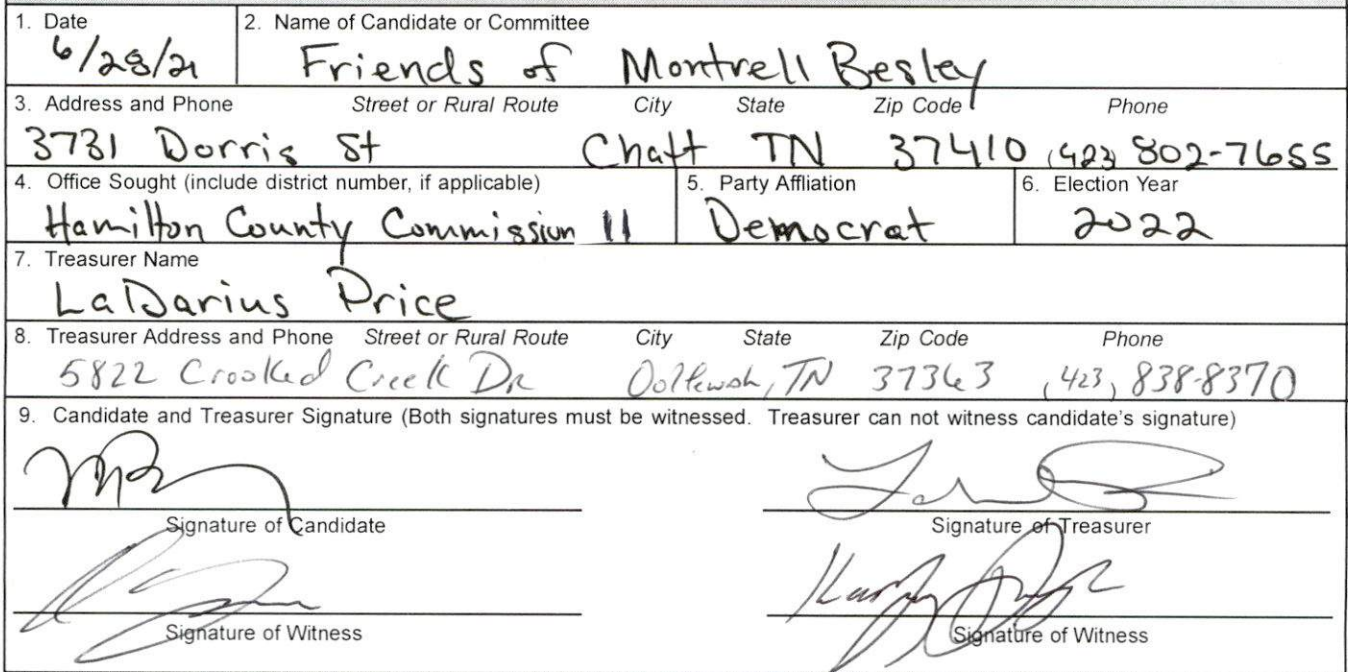 1. Date 2. Name of Candidate or Committee
6/28/21 Friends of Montrell Besley
3. Address and Phone Street or Rural Route City State Zip Code Phone
3731 Dorris St Chatt TN 37410 (423) 802-7655
4. Office Sought (include district number, if applicable) 5. Party Affliation 6. Election Year
Hamilton County Commission 11 Democrat 2022
7. Treasurer Name
LaDarius Price
8. Treasurer Address and Phone Street or Rural Route City State Zip Code Phone
5822 Crooked Creek Dr Ooltewah, TN 37363 (423) 838-8370
9. Candidate and Treasurer Signature (Both signatures must be witnessed. Treasurer can not witness candidate's signature)
Signature of Candidate Signature of Treasurer
Signature of Witness Signature of Witness